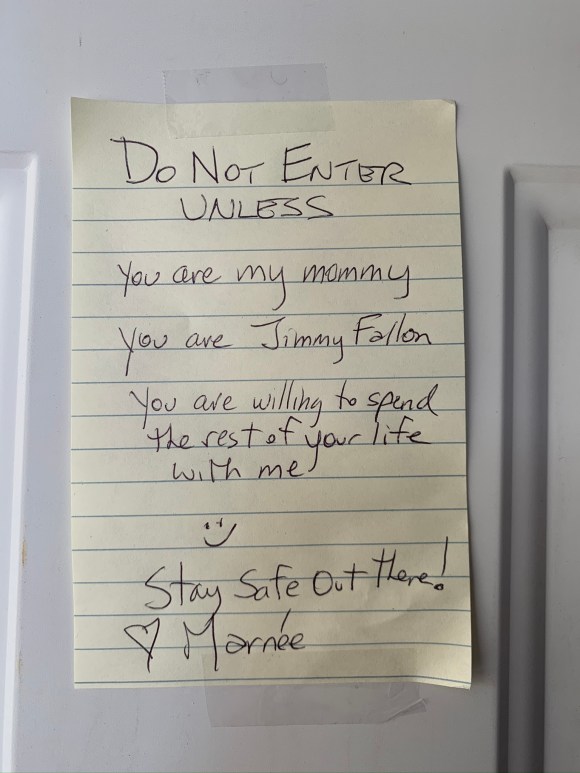 DO NOT ENTER
UNLESS
You are my mommy
You are Jimmy Fallon
You are willing to spend
the rest of your life
with me
:)
Stay Safe Out there!
♡ Marnée